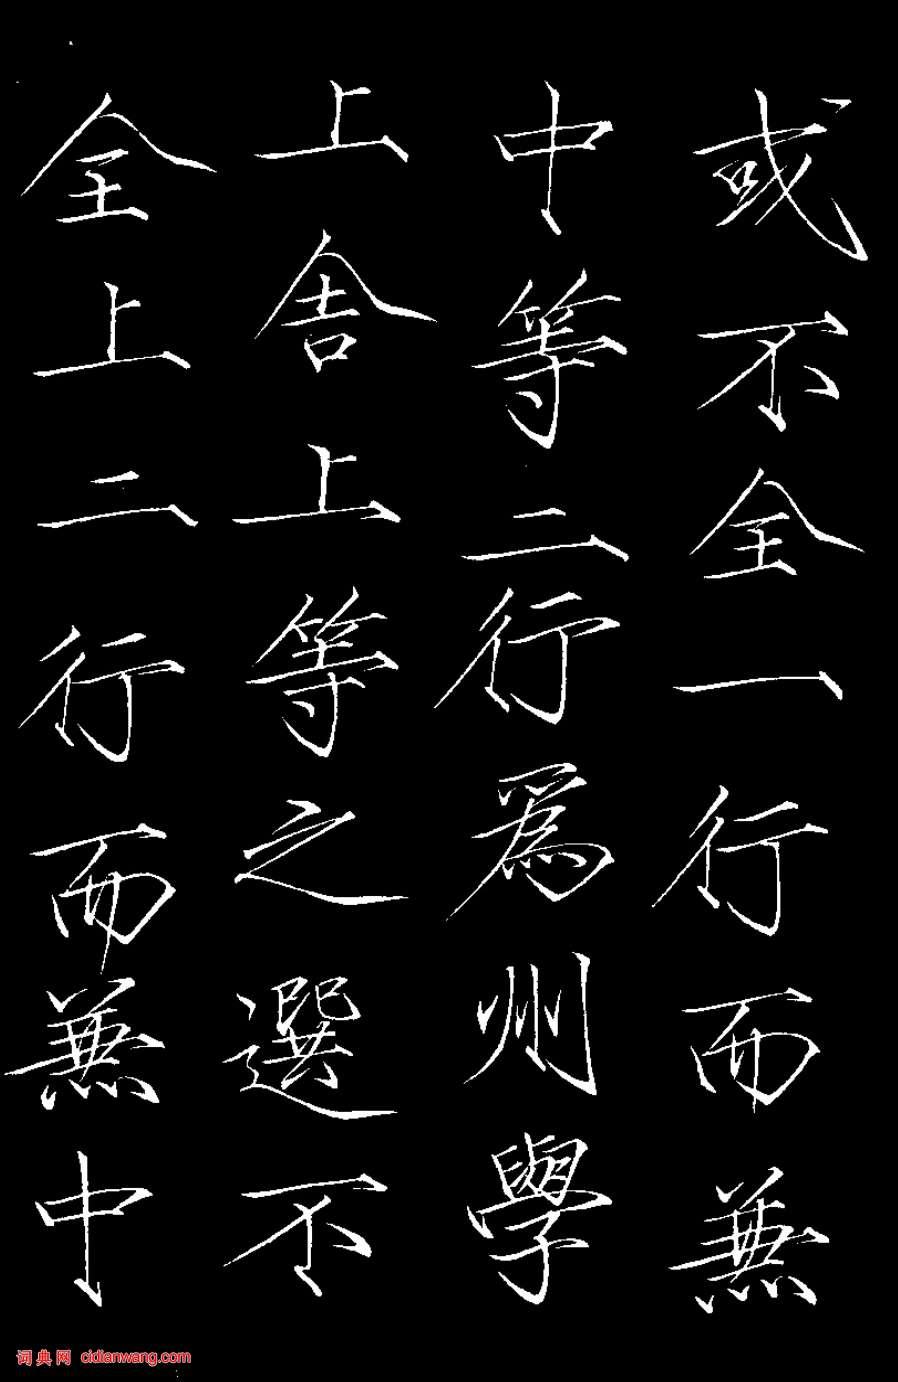 或不全一行而無
中等二行為州學
上舍上等之選不
全上二行而無中
词典网 cidianwang.com